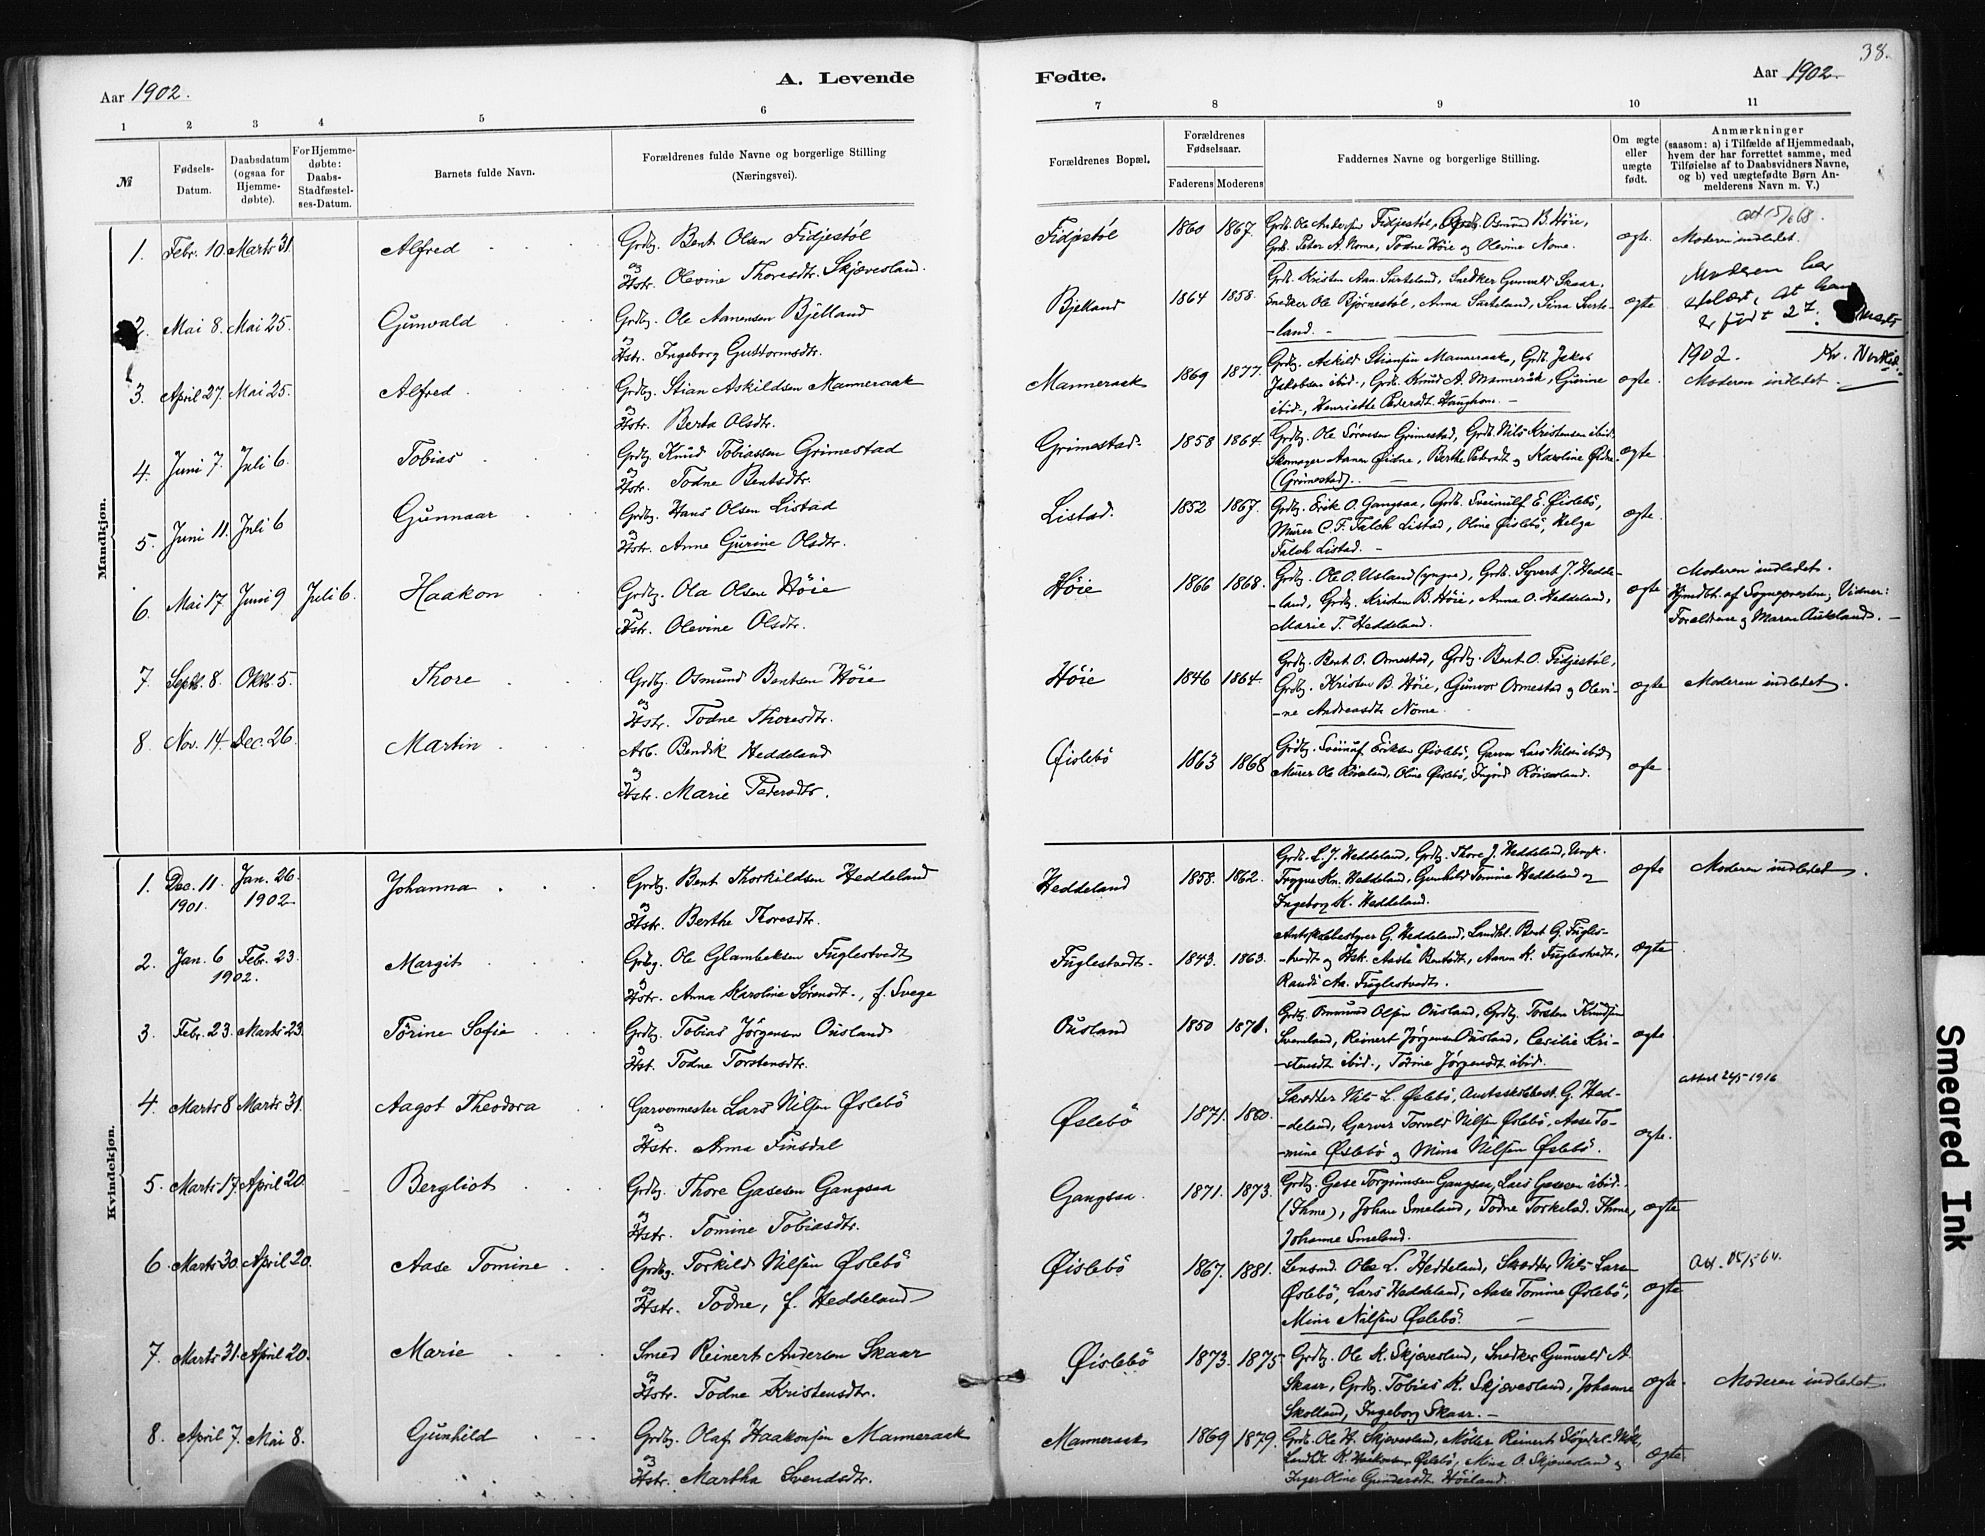 38.
Aar 1902.
A. Levende
Fødte.
Aar 1902.
1 2 3 4 5 6 7 8 9 10 11
№
Fødsels-
Datum.
Daabsdatum
(ogsaa for
Hjemme-
døbte).
For Hjemme-
døbte:
Daabs-
Stadfæstel-
ses-Datum.
Barnets fulde Navn.
Forældrenes fulde Navne og borgerlige Stilling
(Næringsvei).
Forældrenes Bopæl.
Forældrenes
Fødselsaar.
Faderens Moderens
Faddernes Navne og borgerlige Stilling.
Om ægte
eller
uægte
født.
Anmærkninger
(saasom: a) i Tilfælde af Hjemmedaab,
hvem der har forrettet samme, med
Tilføielse af to Daabsvidners Navne,
og b) ved uægtefødte Børn An-
melderens Navn m. V.)
Mandkjøn.
1. Febr. 10. Marts 31. Alfred
Grdbg. Bent Olsen Fidjestøl
og
Hstr. Olevine Thoresdtr. Skjævesland.
Fidjestøl 1860 1867.
Grdb. Ole Andersen Fidjestøl, Grdb. Osmund B. Høie,
Grdb. Peter A. Nome, Todne Høie og Olevine Nome.
ægte. Moderen indledet.
2. Mai 8. Mai 25. Gunvald
Grdbg. Ole Aanensen Bjelland
og
Hstr. Ingeborg Guttormsdtr.
Bjelland 1864 1858.
Grdb. Kristen Aan. Surteland, Snedker Gunvald Skaar,
Snedker Ole Bjørnestøl, Anna Surteland, Sina Surte-
-land. -
ægte
Moderen har
erklært, at han
er født 27.
1902.
3. April 27. Mai 25. Alfred
Grdbg. Stian Askildsen Manneraak
og
Hstr. Berta Olsdtr.
Manneraak 1869 1877.
Grdbg. Askild Stiansen Manneraak, Grdb. Jakob
Jakobsen ibid., Grdb. Knud A. Manneråk, Gurine
ibid., Henriette Pedersdt. Haughom. -
ægte. Moderen indledet.
4. Juni 7. Juli 6. Tobias
Grdbg. Knud Tobiassen Grimestad
og
Hstr. Todne Bentsdtr.
Grimestad. 1858 1864.
Grdbg. Ole Sørensen Grimestad, Grdb. Nils Kristensen ibid.
Skomager Aanen Øidne, Berthe Pedersdt og Karoline Øidne
(Grimestad).
ægte
5. Juni 11. Juli 6 Gunnaar
Grdbg. Hans Olsen Listad
og
Hstr. Anne Gurine Olsdtr.
Listad. 1852 1867.
Grdbg. Erik O. Gangsaa, Grdb. Sveinulf E. Øislebö,
Murer C. F. Falch Listad, Oline Øislebö, Helga
Falch Listad. -
ægte.
6. Mai 17 Juni 9 Juli 6. Haakon
Grdbg. Ola Olsen Høie
og
Hstr. Olevine Olsdtr.
Høie 1866 1868.
Grdbg. Ole O. Usland (yngre), Grdb. Syvert J. Hedde-
-land, Grdbg. Kristen B. Høie, Anna O. Heddeland,
Marie T. Heddeland.
ægte
Moderen indledet.
Hjmdbt. af Sognepresten; Vidner:
Forældrene og Maren Aukland. -
7. Septb. 8. Oktb. 5. Thore
Grdbg. Osmund Bentsen Høie
og
Hstr. Todne Thoresdtr.
Høie 1846 1864.
Grdbg. Bent O. Ormestad, Grdbg. Bent O. Fidjestøl,
Grdbg. Kristen B. Høie, Gunvor Ormestad og Olevi-
-ne Andreasdtr Nome.
ægte Moderen indledet.
8. Nov. 14. Dec. 26. Martin
Arb. Bendik Heddeland
og
Hstr. Marie Pedersdtr.
Øislebö 1863 1868
Grdbg. Sveinulf Eriksen Øislebö, Garver Lars Nilsen ibid
Murer Ole Røiseland, Oline Øislebö, Ingrid Røiseland.
ægte
Kvindekjøn.
1. Dec. 11. 1901. Jan. 26. 1902 Johanna
Grdbg. Bent Thorkildsen Heddeland
og
Hstr. Berthe Thoresdtr.
Heddeland 1858. 1862.
Grdb. L. J. Heddeland, Grdbg. Thore J. Heddeland, Ungk.
Trygve Kn. Heddeland, Gunhild Tomine Heddeland og
Ingeborg K. Heddeland.
ægte Moderen indledet.
2. Jan. 6 Febr. 23. 1902. Margit
Grdbg. Ole Glambeksen Fuglestvedt
og
Hstr. Anna Karoline Sørensdt., f. Svege
Fuglestvedt. 1843. 1863.
Amtsskolebestyrer G. Heddeland, Landhl. Bent G. Fugles-
-tvedt og Hstr. Aasle Bentsdt, Aanen K. Fuglestvedt,
Randi Aa. Fuglestvedt.
ægte
3. Febr. 23. Marts 23. Torine Sofie
Grdbg. Tobias Jørgensen Ousland
og
Hst. Todne Torstensdtr.
Ousland 1850 1871.
Grdbg. Ommund Olsen Ousland, Grdbg. Torsten Knudsen
Sveenland, Reinert Jørgensen Ousland, Cecilie Kri-
-stensdt ibid., Tomine Jørgensdt ibid.
ægte.
4. Marts 8 Marts 31. Aagot Theodora
Garvermester Lars Nilsen Øslebö
og
Hstr. Anna Finsdal
Øslebö 1871. 1880.
Skrædder Nils L. Øslebö, Amtsskolebest. G. Hed-
-deland, Garver Torvald Nilsen Øslebö, Aase To-
-mine Øslebö og Mina Nilsen Øslebö.
ægte.
attest 24/5-1916
5. Marts 17. April 20. Bergliot
Grdbg. Thore Gasesen Gangsaa
og
Hstr. Tomine Tobiasdtr.
Gangsaa. 1871. 1873.
Grdbg. Gase Torgrimsen Gangsaa, Lars Gasesen ibid.
(Thme), Johan Smeland, Todne Torkelsd. Thme,
Johanne Smeland.
ægte
6. Marts 30. April 20. Aase Tomine
Grdbg. Torkild Nilsen Øslebö
og
Hstr. Todne, f. Heddeland
Øislebö 1867. 1881.
Lensmd. Ole L. Heddeland, Skrædder Nils Lars-
Øslebö, Lars Heddeland, Aase Tomine Øslebö,
Mina Nilsen Øslebö.
ægte
7. Marts 31. April 20. Marie
Smed Reinert Andersen Skaar
og
Hstr. Todne Kristensdtr.
Øislebö 1873. 1875
Grdbg. Ole K. Skjævesland, Snedker Gunvald A.
Skaar, Grdbg. Tobias K. Skjævesland, Johanne
Skolland, Ingeborg Skaar. -
ægte. Moderen indledet.
8. April 7. Mai 8. Gunhild
Grdbg. Olaf Haakonsen Manneraak
og
Hstr. Martha Svendsdtr.
Manneraak 1869 1879.
Grdb. Ole H. Skjævesland, Møller Reinert
Øslebö, Mina O. Skjævesland og
Inger Oline Gundersdt Høiland.
ægte
Smeared Ink